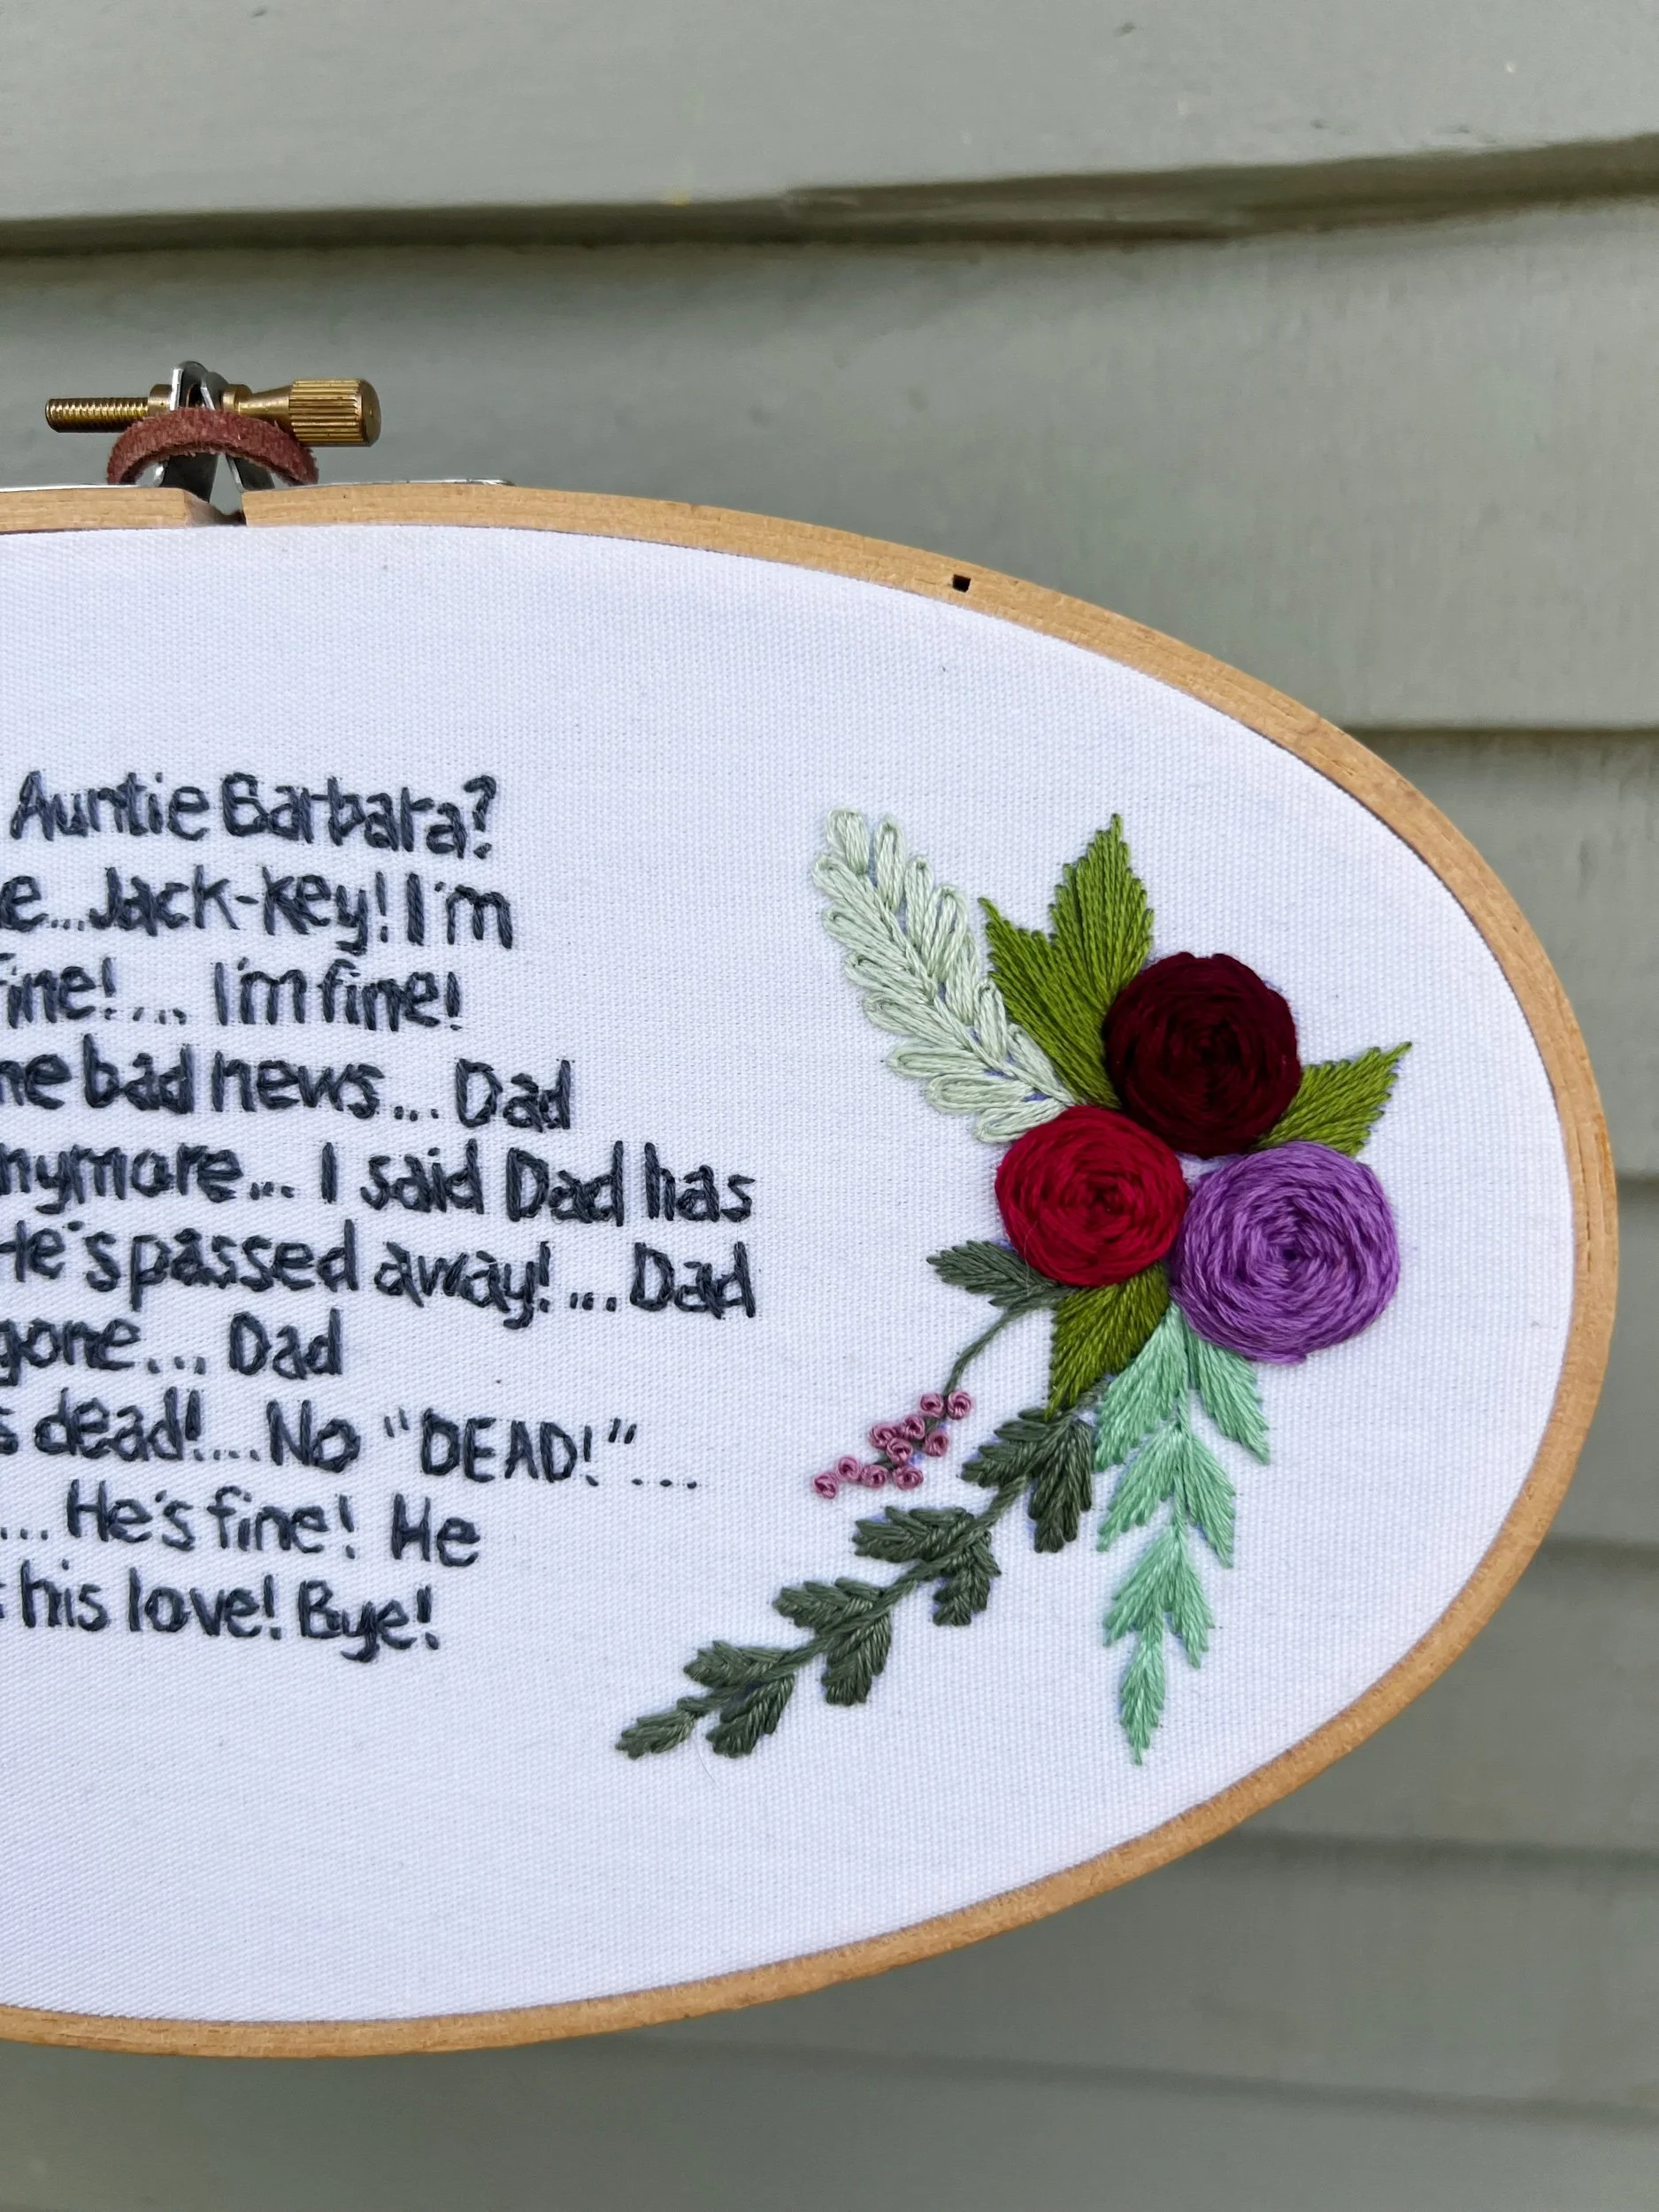 Auntie Barbara?
e...Jack-key! I'm
fine!... I'm fine!
he bad news... Dad
nymore... I said Dad has
He's passed away!... Dad
gone... Dad
s dead!...No "DEAD!"....
... He's fine! He
s his love! Bye!